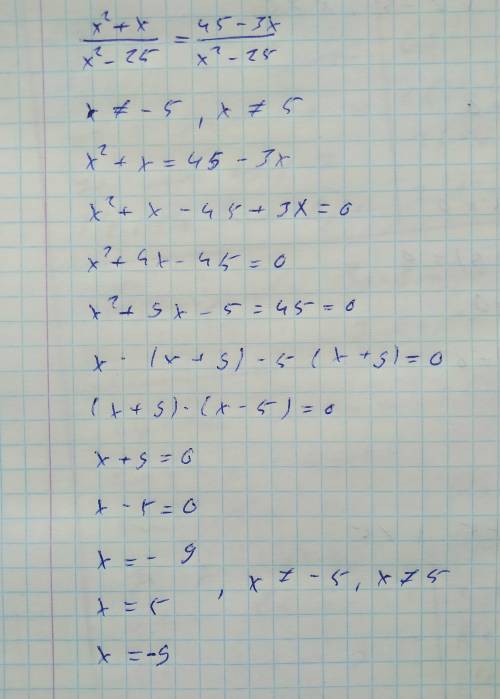 x² + x / x² - 25 = 45 - 3x / x² - 25
x ≠ - 5 , x ≠ 5
x² + x = 45 - 3x
x² + x - 45 + 3x = 0
x² + 4x - 45 = 0
x² + 9x - 5 = 45 = 0
x · (x + 9) - 5 (x + 9) = 0
(x + 9) · (x - 5) = 0
x + 9 = 0
x - 5 = 0
x = - 9
x = 5 , x ≠ - 5, x ≠ 5
x = -9